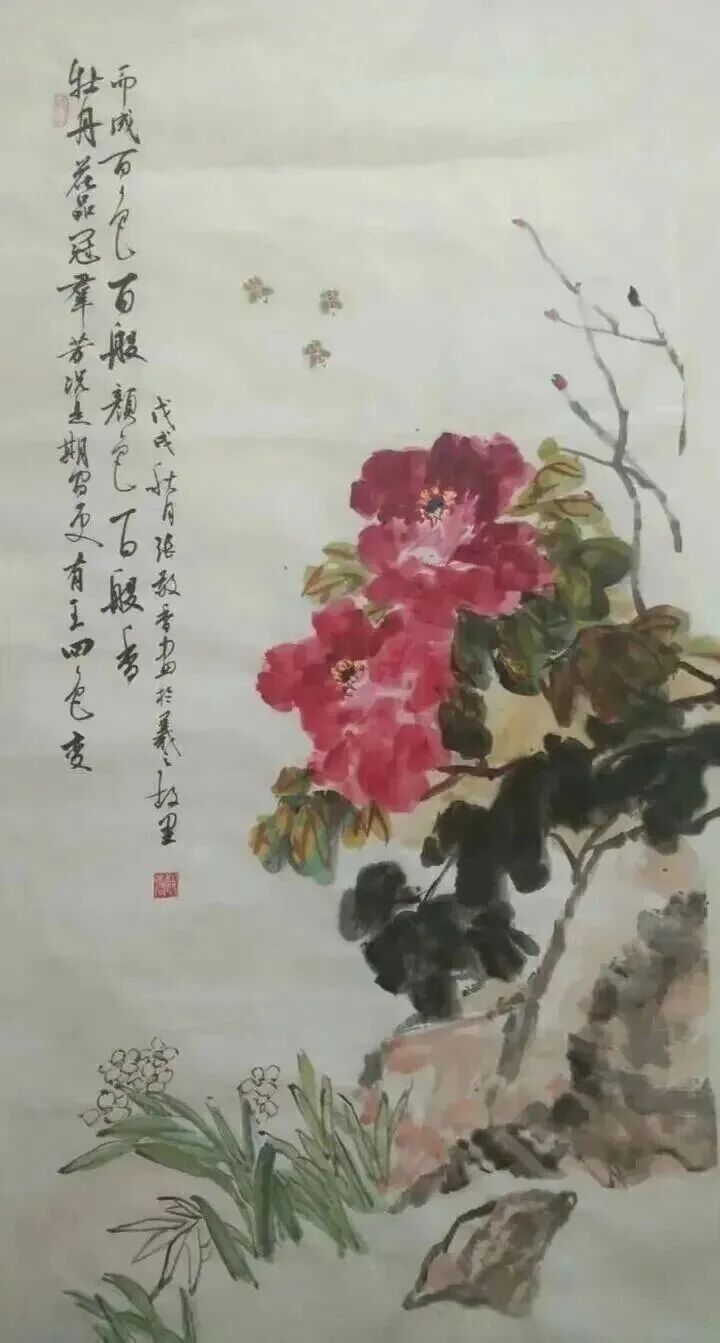 牡丹花品冠羣芳况是期間更有王四色变
而成百色百般颜色百般香
戊戌秋月张香画於羲之故里